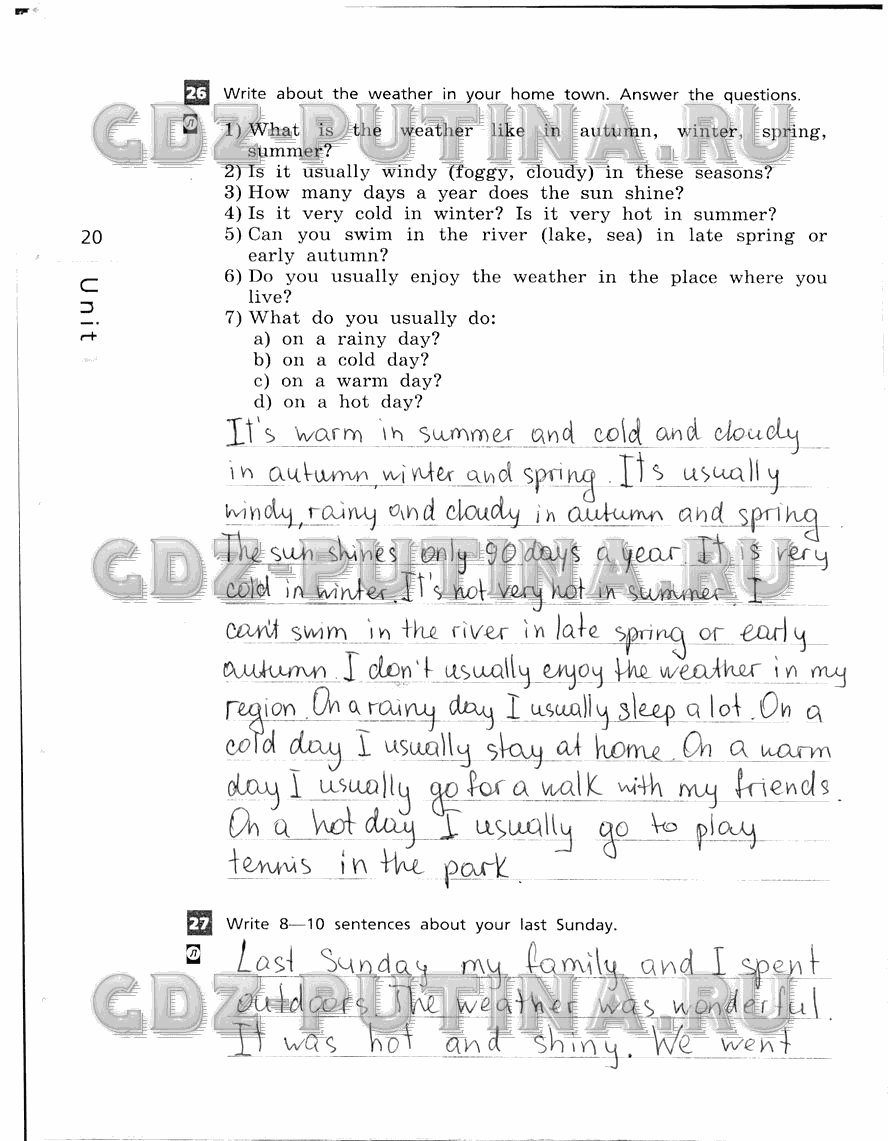 26 Write about the weather in your home town. Answer the questions.
1) What is the weather like in autumn, winter, spring,
summer?
2) Is it usually windy (foggy, cloudy) in these seasons?
3) How many days a year does the sun shine?
4) Is it very cold in winter? Is it very hot in summer?
20
5) Can you swim in the river (lake, sea) in late spring or
early autumn?
6) Do you usually enjoy the weather in the place where you
live?
Unit
7) What do you usually do:
a) on a rainy day?
b) on a cold day?
c) on a warm day?
d) on a hot day?
It's warm in summer and cold and cloudy
in autumn, winter and spring. It's usually
windy, rainy and cloudy in autumn and spring.
The sun shines only 90 days a year. It is very
cold in winter. It's not very hot in summer. I
can't swim in the river in late spring or early
autumn. I don't usually enjoy the weather in my
region. On a rainy day I usually sleep a lot. On a
cold day I usually stay at home. On a warm
day I usually go for a walk with my friends.
On a hot day I usually go to play
tennis in the park.
27 Write 8—10 sentences about your last Sunday.
Last Sunday my family and I spent
outdoors. The weather was wonderful.
It was hot and shiny. We went
GDZ-PUTINA.RU
GDZ-PUTINA.RU
GDZ-PUTINA.RU